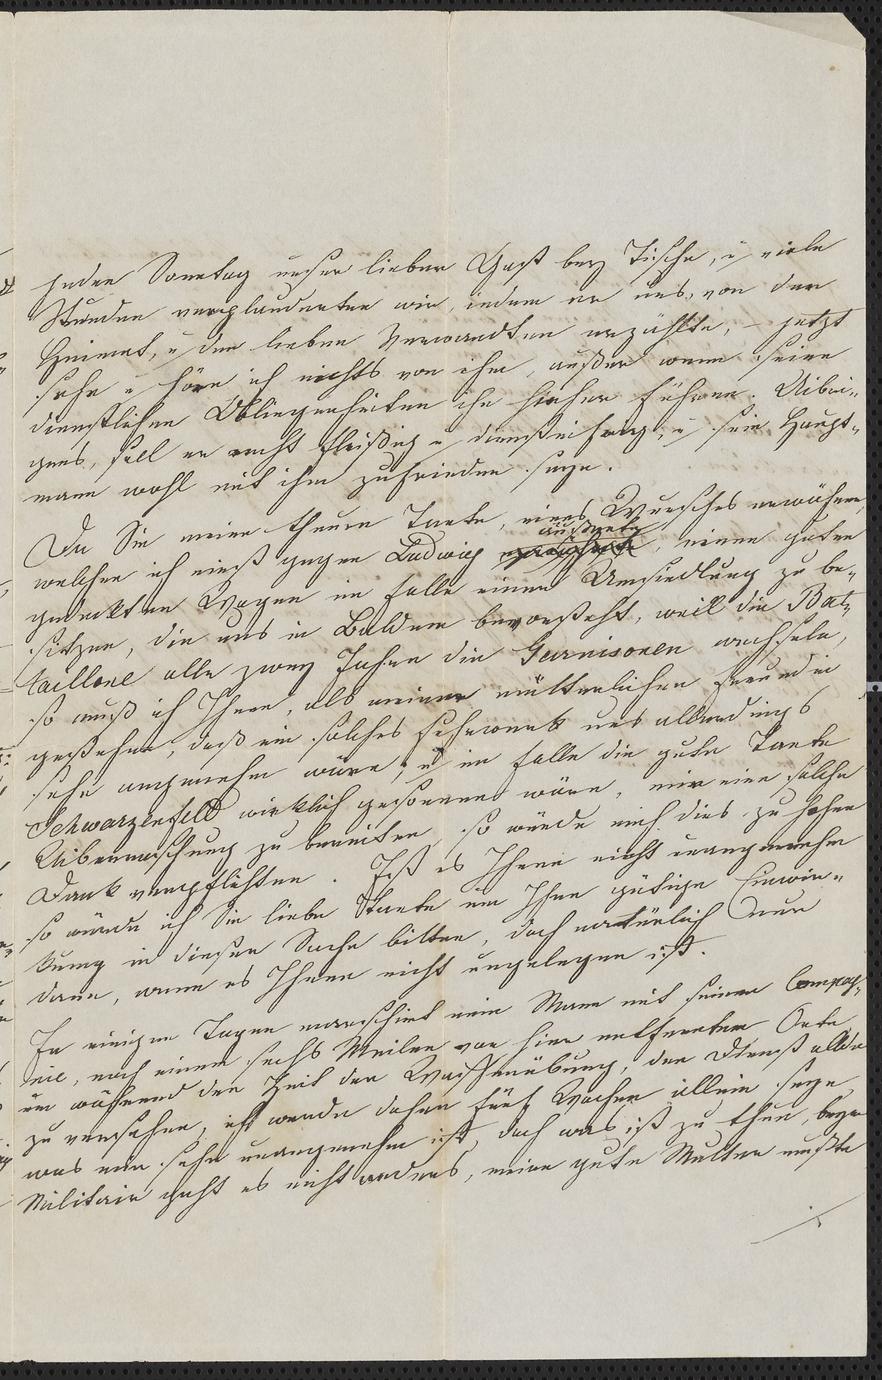 jeden Sonntag unser lieber Gast bey Tische, u viele
Stunden verplauderten wir, indem er uns, von der
Heimat, u den lieben Verwandten erzählte, – jetzt
sehe u höre ich nichts von ihm, außer wenn seine
dienstlichen Obliegenheiten ihn hieher führen. Uibri-
gens, soll er recht fleißig u diensteifrig, u sein Haupt-
mann wohl mit ihm zufrieden seyn.
Da Sie meine theure Tante, eines Wunsches erwähnen,
welchen ich einst gegen Ludwig äußerte, einen guten
gedeckten Wagen im Falle einer Umsiedlung zu be-
sitzen, die uns in Bäldem bevorsteht, weil die Bat-
taillone alle zwey Jahre die Garnisonen wechseln,
so muß ich Ihnen, als meiner mütterlichen Freundin
gestehen, daß ein solches Fuhrwerk uns allerdings
sehr angenehm wäre, u im Falle die gute Tante
Schwarzenfeld wirklich gesonnen wäre, mir eine solche
Uiberraschung zu bereiten, so würde mich dies zu hohen
Dank verpflichten. Ist es Ihnen nicht unangenehm
so würde ich Sie liebe Tante um Ihre gütige Einwir-
kung in dieser Sache bitten, doch natürlich nur
dann, wenn es Ihnen nicht ungelegen ist.
In einigen Tagen marschiert mein Mann mit seiner Compag-
nie, nach einem sechs Meilen von hier entfernten Orte
um während der Zeit der Waffenübung, den Dienst allda
zu versehen, ich werde daher fünf Wochen allein seyn
was mir sehr unangenehm ist, doch was ist zu thun, beym
Militair geht es nicht anders, meine gute Mutter mußte